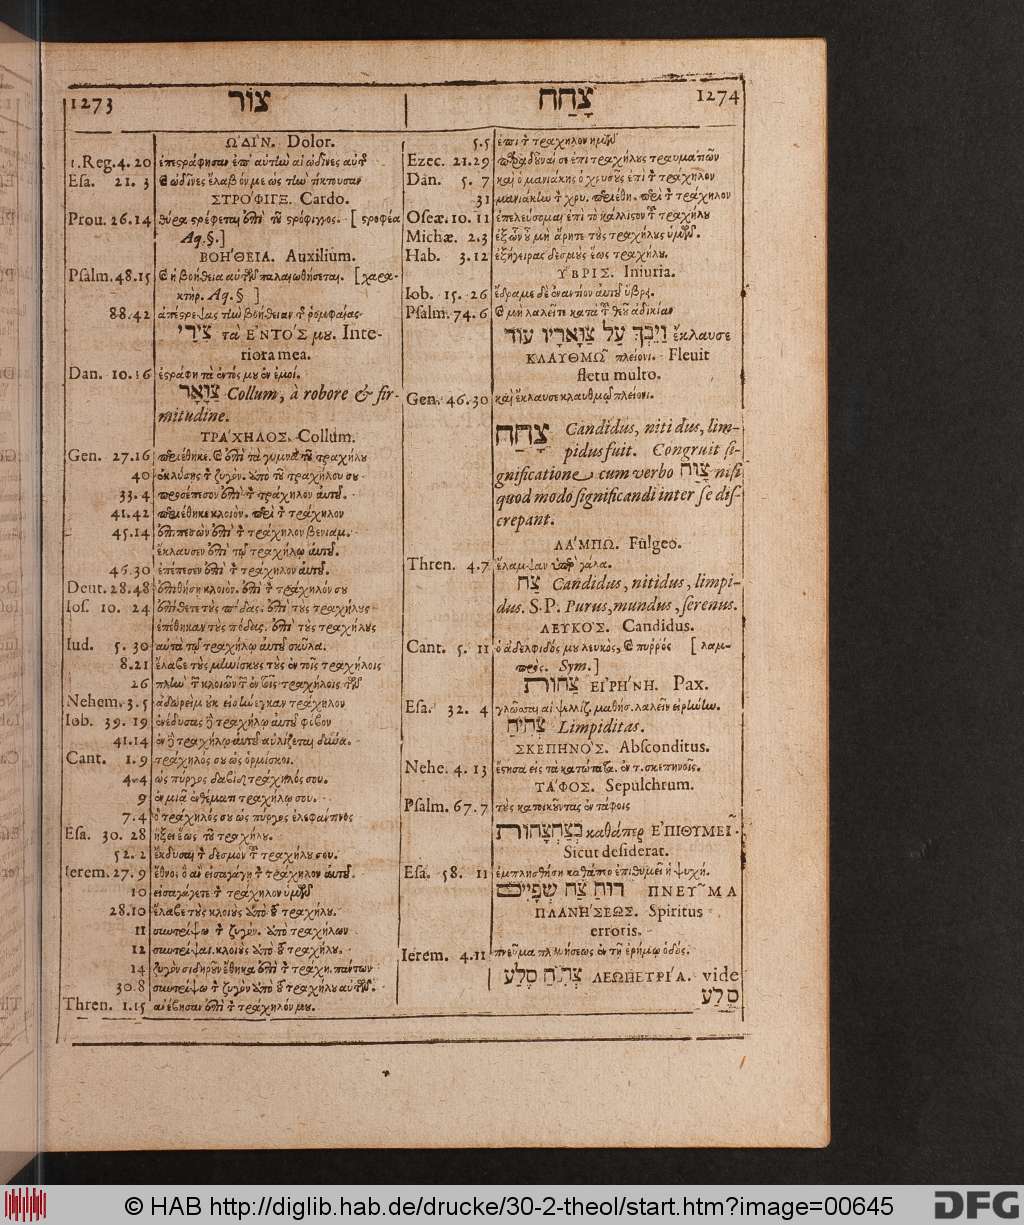 1273 צור
צָחַח 1274
ὨΔΙΝ. Dolor.
1.Reg.4.20 ἐπεστράφησαν ἐπ᾽ αὐτὴν αἱ ὠδῖνες αὐτῆς
Esa. 21. 3 ὠδῖνες ἔλαβόν με ὡς τὴν τίκτουσαν
ΣΤΡΟΦΙΓΞ. Cardo.
Prou. 26.14 θύρα στρέφεται ἐπὶ τοῦ στρόφιγγος. [στροφέα
Aq.§.]
ΒΟΗΘΕΙΑ. Auxilium.
Psalm. 48.15 ἡ βοήθεια αὐτῶν παλαιωθήσεται. [χαρα-
κτὴρ. Aq.§ ]
88.42 ἀπέστρεψας τὴν βοήθειαν τῆς ῥομφαίας
צִירַי τὰ ἘΝΤΟΣ μου. Inte-
riora mea.
Dan. 10.16 ἐστράφη τὰ ἐντός μου ἐν ἐμοί.
צַוָּאר Collum, à robore & fir-
mitudine.
ΤΡΑΧΗΛΟΣ. Collum.
Gen. 27.16 περιέθηκε ἐπὶ τὰ γυμνὰ τοῦ τραχήλου
40 ἐκλύσῃς τὸν ζυγόν. ἀπὸ τοῦ τραχήλου σου
33. 4 προσέπεσον ἐπὶ τὸν τράχηλον αὐτοῦ.
41.42 περιέθηκε κλοιὸν. περὶ τὸν τράχηλον
45.14 ἐπιπεσὼν ἐπὶ τὸν τράχηλον βενιαμ.
ἔκλαυσεν ἐπὶ τῷ τραχήλῳ αὐτοῦ.
46.30 ἐπέπεσεν ἐπὶ τὸν τράχηλον αὐτοῦ.
Deut. 28.48 ἐπιθήσῃ κλοιὸν. ἐπὶ τὸν τράχηλόν σου
Ios. 10. 24 ἐπίθετε τοὺς πόδας. ἐπὶ τοὺς τραχήλους
ἐπέθηκαν τοὺς πόδας. ἐπὶ τοὺς τραχήλους
Iud. 5. 30 αὐτὰ τῷ τραχήλῳ αὐτοῦ σκῦλα.
8.21 ἔλαβε τοὺς μηνίσκους τοὺς ἐν τοῖς τραχήλοις
26 πλὴν τῶν κλοιῶν τῶν ἐν τοῖς τραχήλοις τῶν
Nehem. 3.5 ἀδωρεὶμ οὐκ εἰσήνεγκαν τράχηλον
Iob. 39. 19 ἐνέδυσας τῷ τραχήλῳ αὐτοῦ φόβον
41.14 ἐν τῷ τραχήλῳ αὐτοῦ αὐλίζεται
Cant. 1. 9 τράχηλός σου ὡς ὁρμίσκοι.
4.4 ὡς πύργος δαβὶδ τράχηλός σου.
9 ἐν μιᾷ ἐνθέματι τραχήλῳ σου.
7.4 ὁ τράχηλός σου ὡς πύργος ἐλεφάντινος
Esa. 30. 28 ἥξει ἕως τοῦ τραχήλου.
52. 2 ἔκδυσαι τὸν δεσμὸν τοῦ τραχήλου σου.
Ierem. 27. 9 ἔθνος ὃ ἂν εἰσαγάγῃ τὸν τράχηλον αὐτοῦ.
10 εἰσαγάγετε τὸν τράχηλον ὑμῶν
28.10 ἔλαβε τοὺς κλοιοὺς ἀπὸ τοῦ τραχήλου.
11 συντρίψω τὸν ζυγὸν. ἀπὸ τραχήλων
12 συντρίψαι. κλοιοὺς ἀπὸ τοῦ τραχήλου.
14 ζυγὸν σιδηροῦν ἔθηκα ἐπὶ τὸν τράχη. πάντων
30.8 συντρίψω τὸν ζυγὸν ἀπὸ τοῦ τραχήλου αὐτῶν.
Thren. 1.15 ἀνέβησαν ἐπὶ τὸν τράχηλόν μου.
5.5 ἐπὶ τὸν τράχηλον ἡμῶν
Ezec. 21.29 παραδοῦναί σε ἐπὶ τραχήλους τραυματιῶν
Dan. 5. 7 καὶ ὁ μανιάκης ὁ χρυσοῦς ἐπὶ τὸν τράχηλον
31 μανιάκην τὸν χρυ. περιέθη. περὶ τὸν τράχηλον
Oseæ. 10. 11 ἐπελεύσομαι ἐπὶ τὸ κάλλιστον τοῦ τραχήλου
Michæ. 2.3 ἐξ ὧν οὐ μὴ ἄρητε τοὺς τραχήλους ὑμῶν.
Hab. 3.12 ἐξήγειρας δεσμοὺς ἕως τραχήλου.
ὝΒΡΙΣ. Iniuria.
Iob. 15. 26 ἔδραμε δὲ ἐναντίον αὐτοῦ ὕβρει.
Psalm. 74. 6 μὴ λαλεῖτε κατὰ τοῦ θεοῦ ἀδικίαν
וַיֵּבְךְּ עַל צַוָּארָיו עוֹד ἔκλαυσε
ΚΛΑΥΘΜΩ πλείονι. Fleuit
fletu multo.
Gen. 46.30 καὶ ἔκλαυσε κλαυθμῷ πλείονι.
צָחַח Candidus, nitidus, lim-
pidus fuit. Congruit si-
gnificatione cum verbo צוח nisi
quod modo significandi inter se dis-
crepant.
ΛΑΜΠΩ. Fulgeo.
Thren. 4.7 ἔλαμψαν ὑπὲρ γάλα.
צַח Candidus, nitidus, limpi-
dus. S.P. Purus, mundus, serenus.
ΛΕΥΚΟΣ. Candidus.
Cant. 5. 11 ὁ ἀδελφιδός μου λευκὸς, πυρρός [λαμ-
πρὸς. Sym.]
צחות ΕΙΡΗΝΗ. Pax.
Esa. 32. 4 γλῶσσαι αἱ ψελλίζ. μαθήσ. λαλεῖν εἰρήνην.
צְחִיחַ Limpiditas.
ΣΚΕΠΗΝΟΣ. Absconditus.
Nehe. 4. 13 ἔστησα εἰς τὰ κατώτατα. ἐν τ. σκεπηνοῖς.
ΤΑΦΟΣ. Sepulchrum.
Psalm. 67. 7 τοὺς κατοικοῦντας ἐν τάφοις
בְּצַחְצָחוֹת καθάπερ ἘΠΙΘΥΜΕΙ·
Sicut desiderat.
Esa. 58. 11 ἐμπλησθήσῃ καθάπερ ἐπιθυμεῖ ἡ ψυχή.
רוּחַ צַח שְׁפָיִים ΠΝΕΥΜΑ
ΠΛΑΝΗΣΕΩΣ. Spiritus
erroris.
Ierem. 4.11 πνεῦμα πλανήσεως ἐν τῇ ἐρήμῳ ὁδός.
צְחִיחַ סֶלַע ΛΕΩΠΕΤΡΙΑ. vide
סֶלַע
© HAB http://diglib.hab.de/drucke/30-2-theol/start.htm?image=00645
DFG